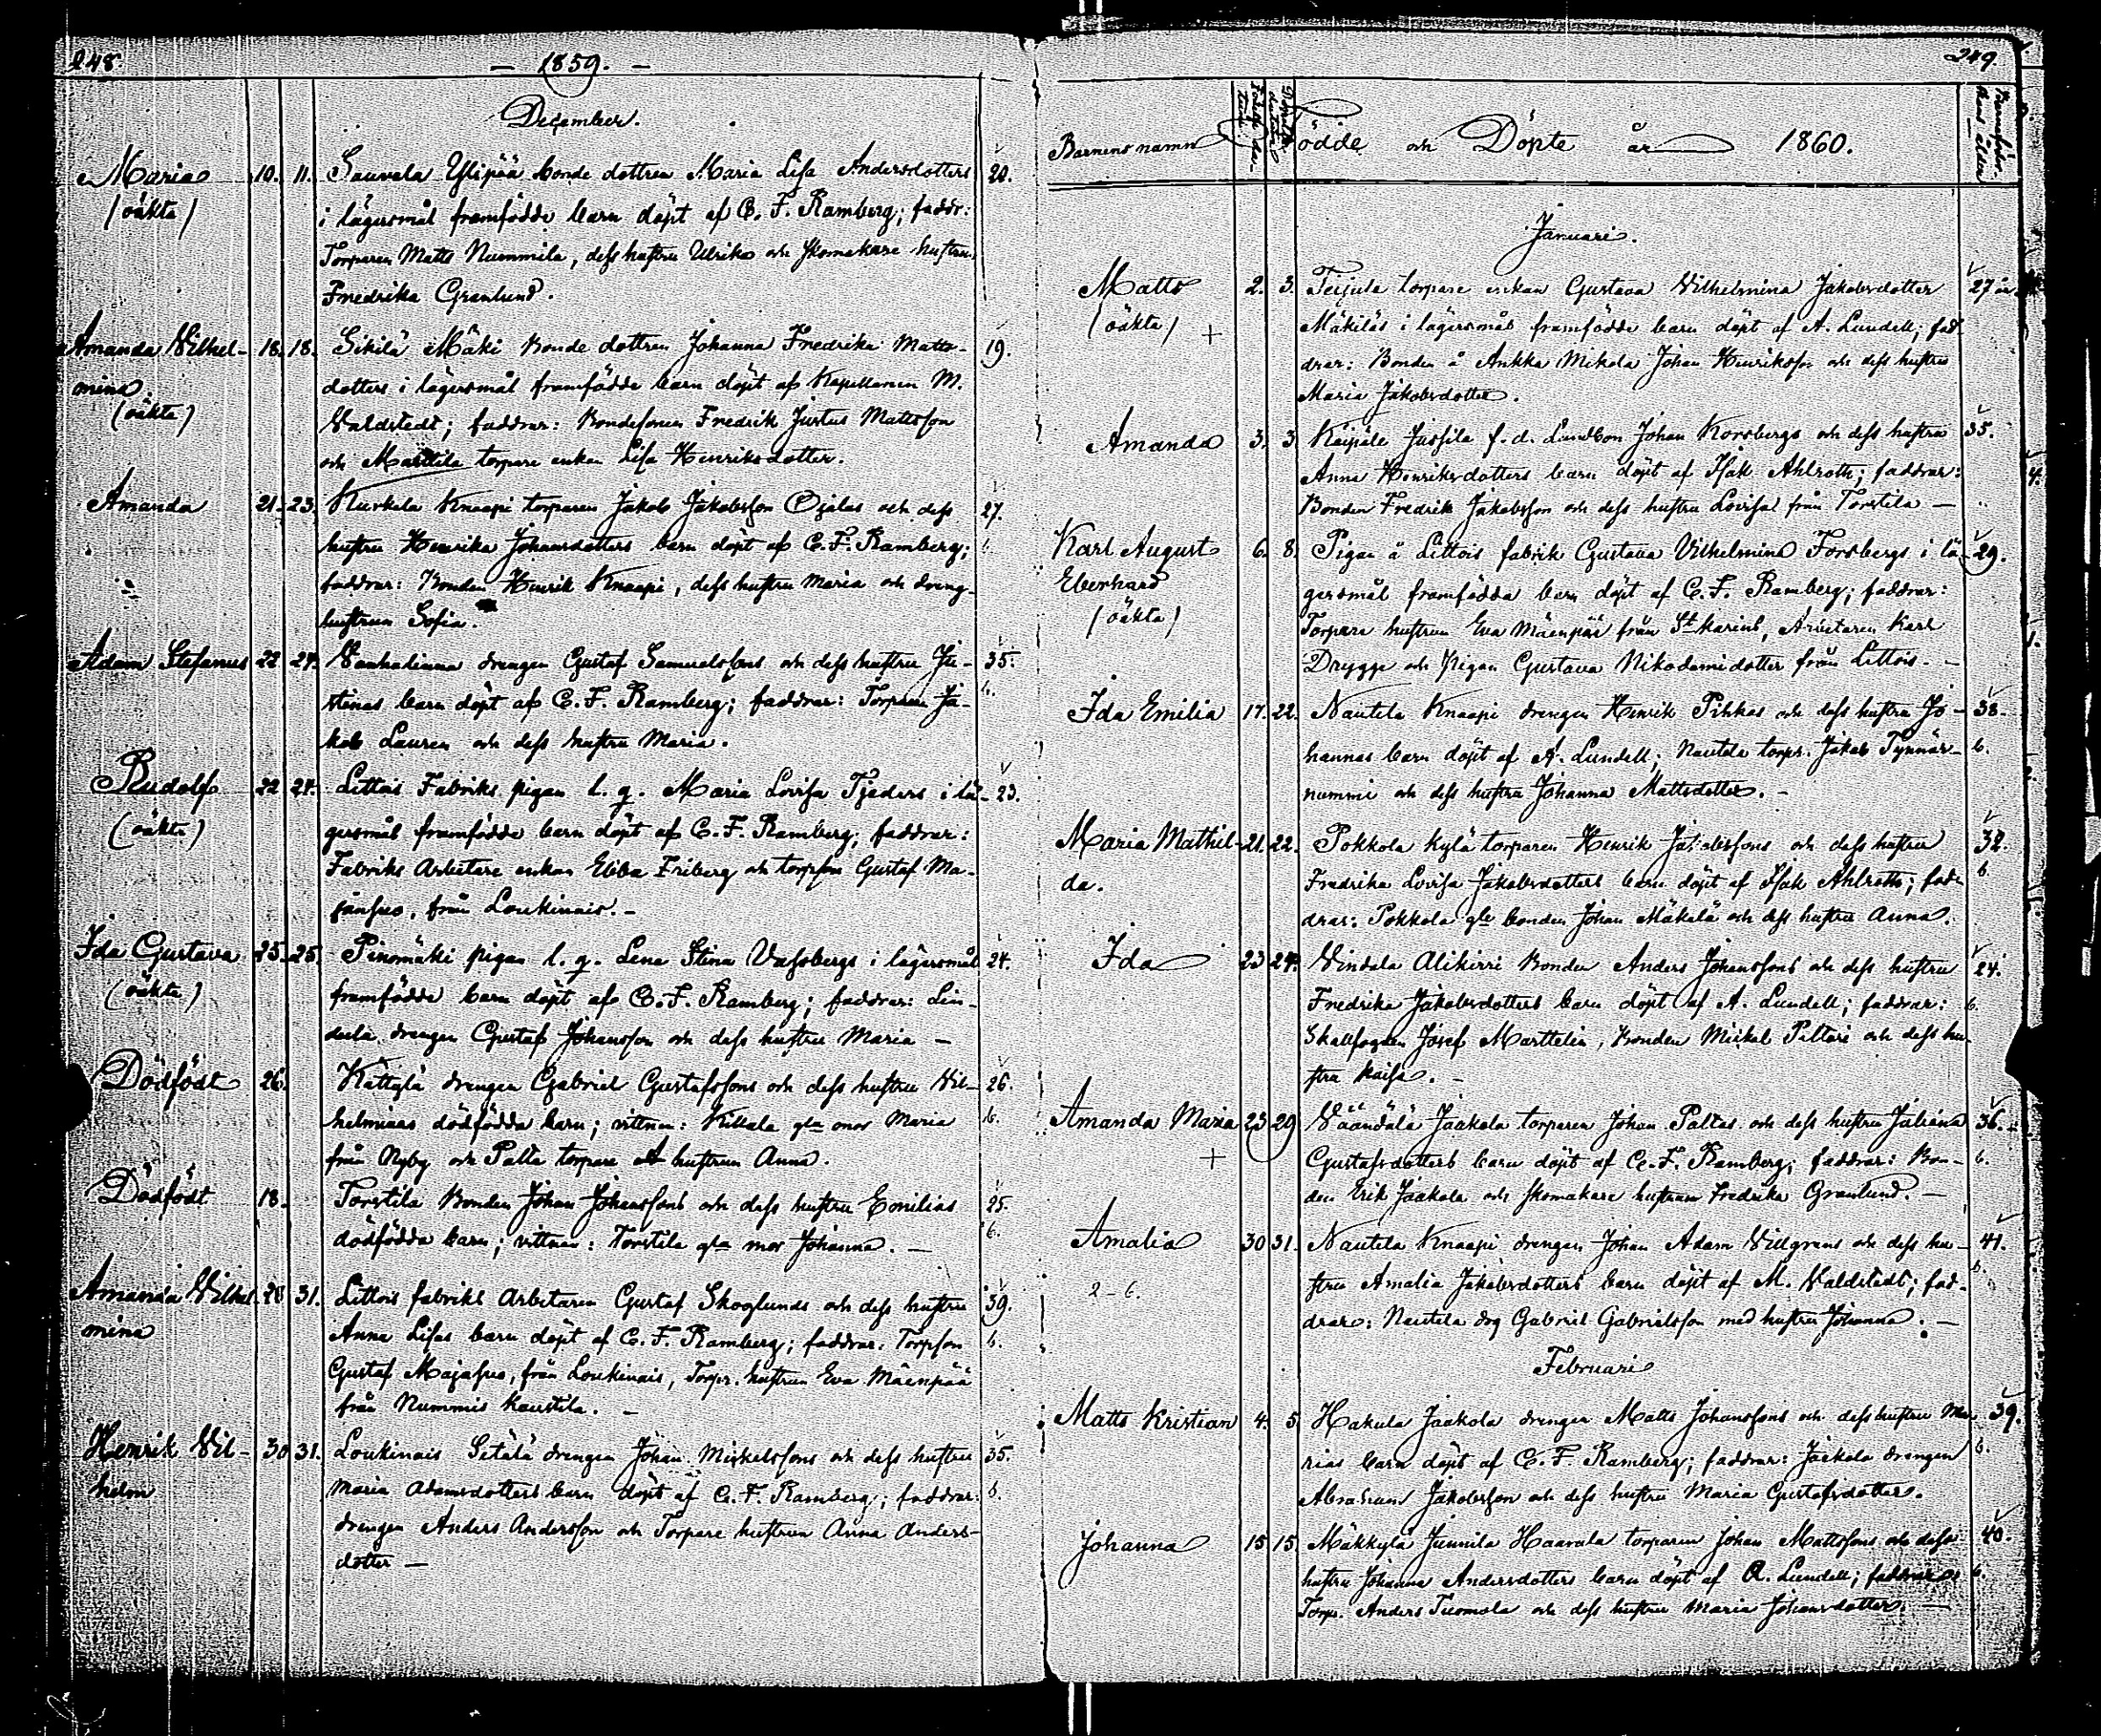 248.
— 1859. —
December.
Maria 10. 11. Sauvala Yllipää bonde dottren Maria Lisa Andersdotters 20.
(oäkta) i lägersmål framfödde barn döpt af C. F. Ramberg; faddr:
Torparen Matts Nummila, dess hustru Ulrika och Skomakare hustrun
Fredrika Granlund.
Amanda Vilhel- 18. 18. Sikilä Mäki Bonde dottren Johanna Fredrika Matts- 19.
mina dotters i lägersmål framfödde barn döpt af Kapellanen M.
(oäkta) Valdstedt; faddrar: Bondesonen Fredrik Justus Mattsson
och Marttila torpare enkan Lisa Henriksdotter.
Amanda 21. 23. Kurkela Knaapi torparen Jakob Jakobsson Ojalas och dess 27.
hustru Henrika Johansdotters barn döpt af C. F. Ramberg; b.
faddrar: Bonden Henrik Knaapi, dess hustru Maria och dreng-
hustrun Sofia.
Adam Stefanus 22 24. Vanhalinna drengen Gustaf Samuelssons och dess hustru Ju- 35.
stinas barn döpt af C. F. Ramberg; faddrar: Torparen Ja- b.
kob Lauren och dess hustru Maria.
Rudolf 22 24. Littois Fabriks pigan l. q. Maria Lovisa Tjeders i lä- 23.
(oäkta) gersmål framfödde barn döpt af C. F. Ramberg; faddrar:
Fabriks Arbetare enkan Ebba Friberg och torpson Gustaf Ma-
jansuo, från Loukinais. -
Ida Gustava 25. 25. Pinomäki pigan l. q. Lena Stina Vassbergs i lägersmål 24.
(oäkta) framfödde barn döpt af C. F. Ramberg; faddrar: Lin-
dula drengen Gustaf Johansson och dess hustru Maria —
Dödfödt 26. Kättylä drengen Gabriel Gustafssons och dess hustru Vil- 26.
helminas dödfödda barn; vittnen: Killala gla mor Maria b.
från Nyby och Palta torpare hustrun Anna.
Dödfödt 18. Torstila Bonden Johan Johanssons och dess hustru Emilias 25.
dödfödda barn; vittnen: Torstila gla mor Johanna. — b.
Amanda Vilhel- 28 31. Littois fabriks Arbetaren Gustaf Skoglunds och dess hustru 39.
mina Anna Lisas barn döpt af C. F. Ramberg; faddrar: Torpson b.
Gustaf Majasuo, från Loukinais, Torpr. hustrun Eva Mäenpää
från Nummis Kaustila. -
Henrik Vil- 30 31. Loukinais Setälä drengen Johan Mickelssons och dess hustru 35.
helm Maria Adamsdotters barn döpt af C. F. Ramberg; faddrar: b.
drengen Anders Andersson och Torpare hustrun Anna Anders-
dotter —
249.
Barnens namn Födde och Döpte år 1860.
Januari.
Matts 2. 3. Teijula torpare enkan Gustava Vilhelmina Jakobsdotter 27 år.
(oäkta) + Mäkiläs i lägersmål framfödde barn döpt af A. Lundell; fad-
drar: Bonden å Ankka Mikola Johan Henriksson och dess hustru
Maria Jakobsdotter.
Amanda 3. 3 Käipäle Jussila f. d. Landbon Johan Korsbergs och dess hustru 35.
Anna Henriksdotters barn döpt af Isak Ahlroth; faddrar:
Bonden Fredrik Jakobsson och dess hustru Lovisa från Torstila —
Karl August 6. 8. Pigan å Littois fabrik Gustava Vilhelmina Forsbergs i lä- 29.
Eberhard gersmål framfödda barn döpt af C. F. Ramberg; faddrar:
(oäkta) Torpare hustrun Eva Mäenpää från St Karins, Arbetaren Karl
Drygge och Pigan Gustava Nikodemi dotter från Littois. -
Ida Emilia 17. 22. Nautela Knaapi drengen Henrik Pihkas och dess hustru Jo- 38.
hannas barn döpt af A. Lundell; Nautela torpr. Jakob Tynnär- b.
nummi och dess hustru Johanna Mattsdotter. -
Maria Mathil- 21. 22. Pokkola Kylä torparen Henrik Jakobssons och dess hustru 32.
da. Fredrika Lovisa Jakobsdotters barn döpt af Isak Ahlroth; fad- b.
drar: Pokkola gle bonden Johan Mäkelä och dess hustru Anna.
Ida 23 24. Vindala Alikirri Bonden Anders Johanssons och dess hustru 24.
Fredrika Jakobsdotters barn döpt af A. Lundell; faddrar: b.
Skallfogden Josef Marttelin, Bonden Mickel Piltari och dess hu-
stru Kaisa. -
Amanda Maria 23 29 Väändälä Jaakola torparen Johan Paltas och dess hustru Juliana 36.
+ Gustafsdotters barn döpt af C. F. Ramberg; faddrar: Bon- b.
den Erik Jaakola och Skomakare hustrun Fredrika Granlund. —
Amalia 30 31. Nautela Knaapi drengen Johan Adam Villgrens och dess hu- 41.
2-6. stru Amalia Jakobsdotters barn döpt af M. Valdstedt; fad- b.
drar: Nautela drg Gabriel Gabrielsson med hustru Johanna. —
Februari
Matts Kristian 4. 5 Hakula Jaakola drengen Matts Johanssons och dess hustru Ma- 39.
rias barn döpt af C. F. Ramberg; faddrar: Jaakola drengen b.
Abraham Jakobsson och dess hustru Maria Gustafsdotter.
Johanna 15 15. Mäkkylä Junnila Haavala torparen Johan Mattssons och dess 40.
hustru Johanna Andersdotters barn döpt af A. Lundell; faddrar: b.
Torp. Anders Tuomola och dess hustru Maria Johansdotter. —